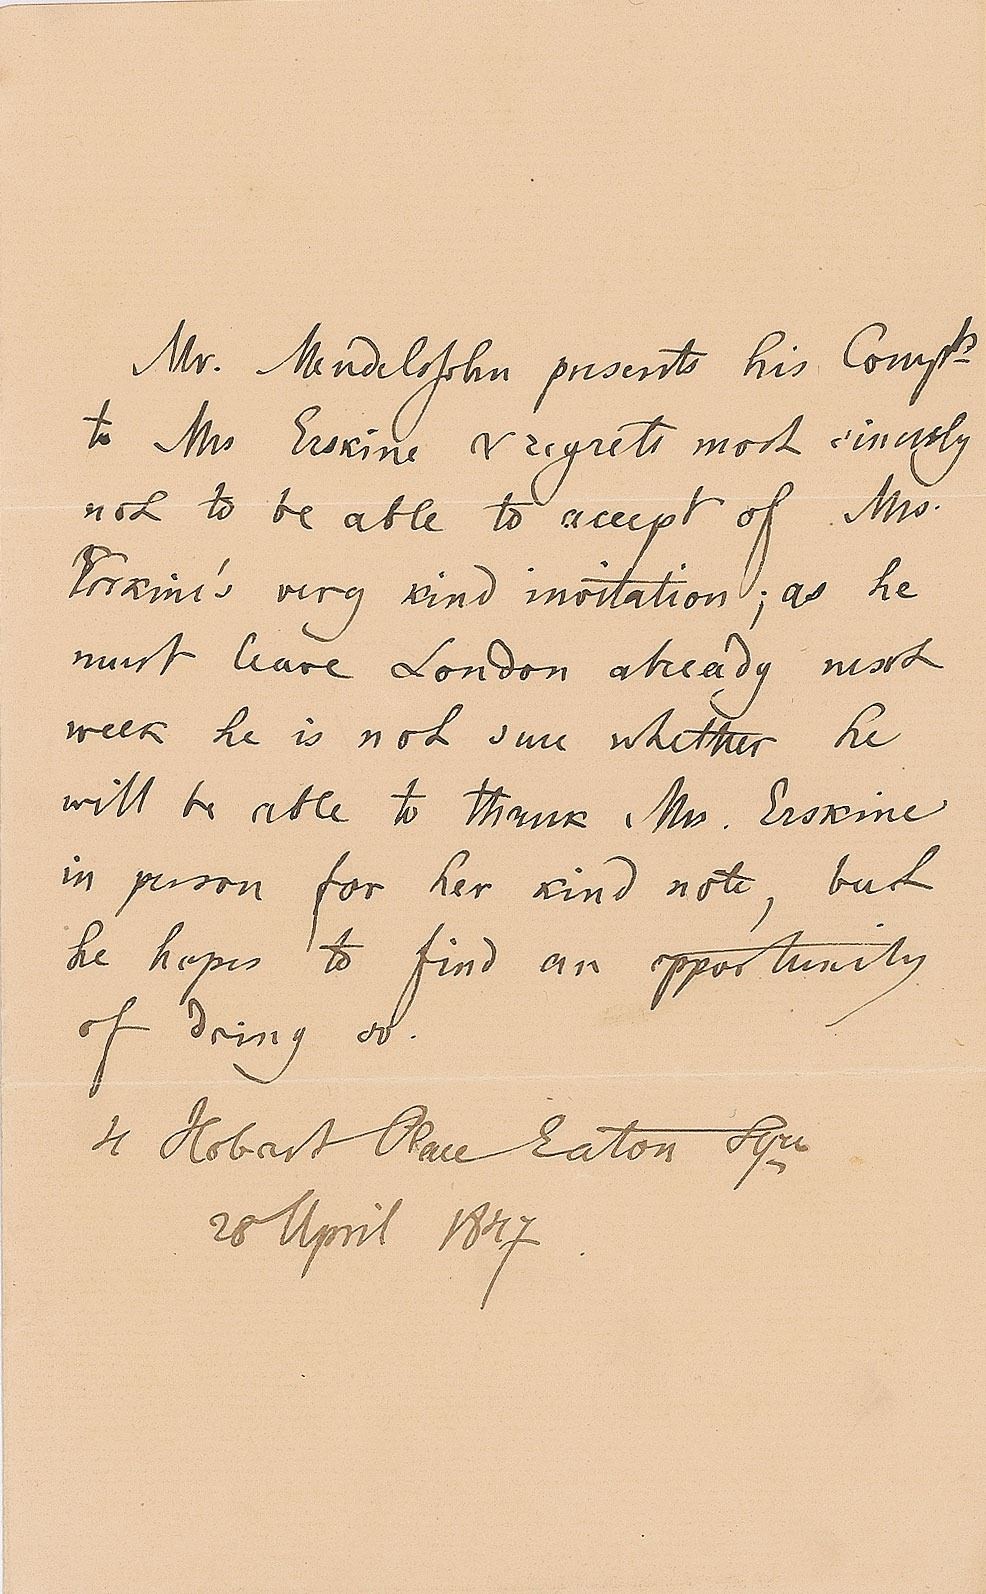 Mr. Mendelssohn presents his Compts
to Mrs Erskine & regrets most sincerely
not to be able to accept of Mrs.
Erskine's very kind invitation; as he
must leave London already next
week he is not sure whether he
will be able to thank Mrs. Erskine
in person for her kind note, but
he hopes to find an opportunity
of doing so.
4 Hobart Place Eaton Sqre
28 April 1847.